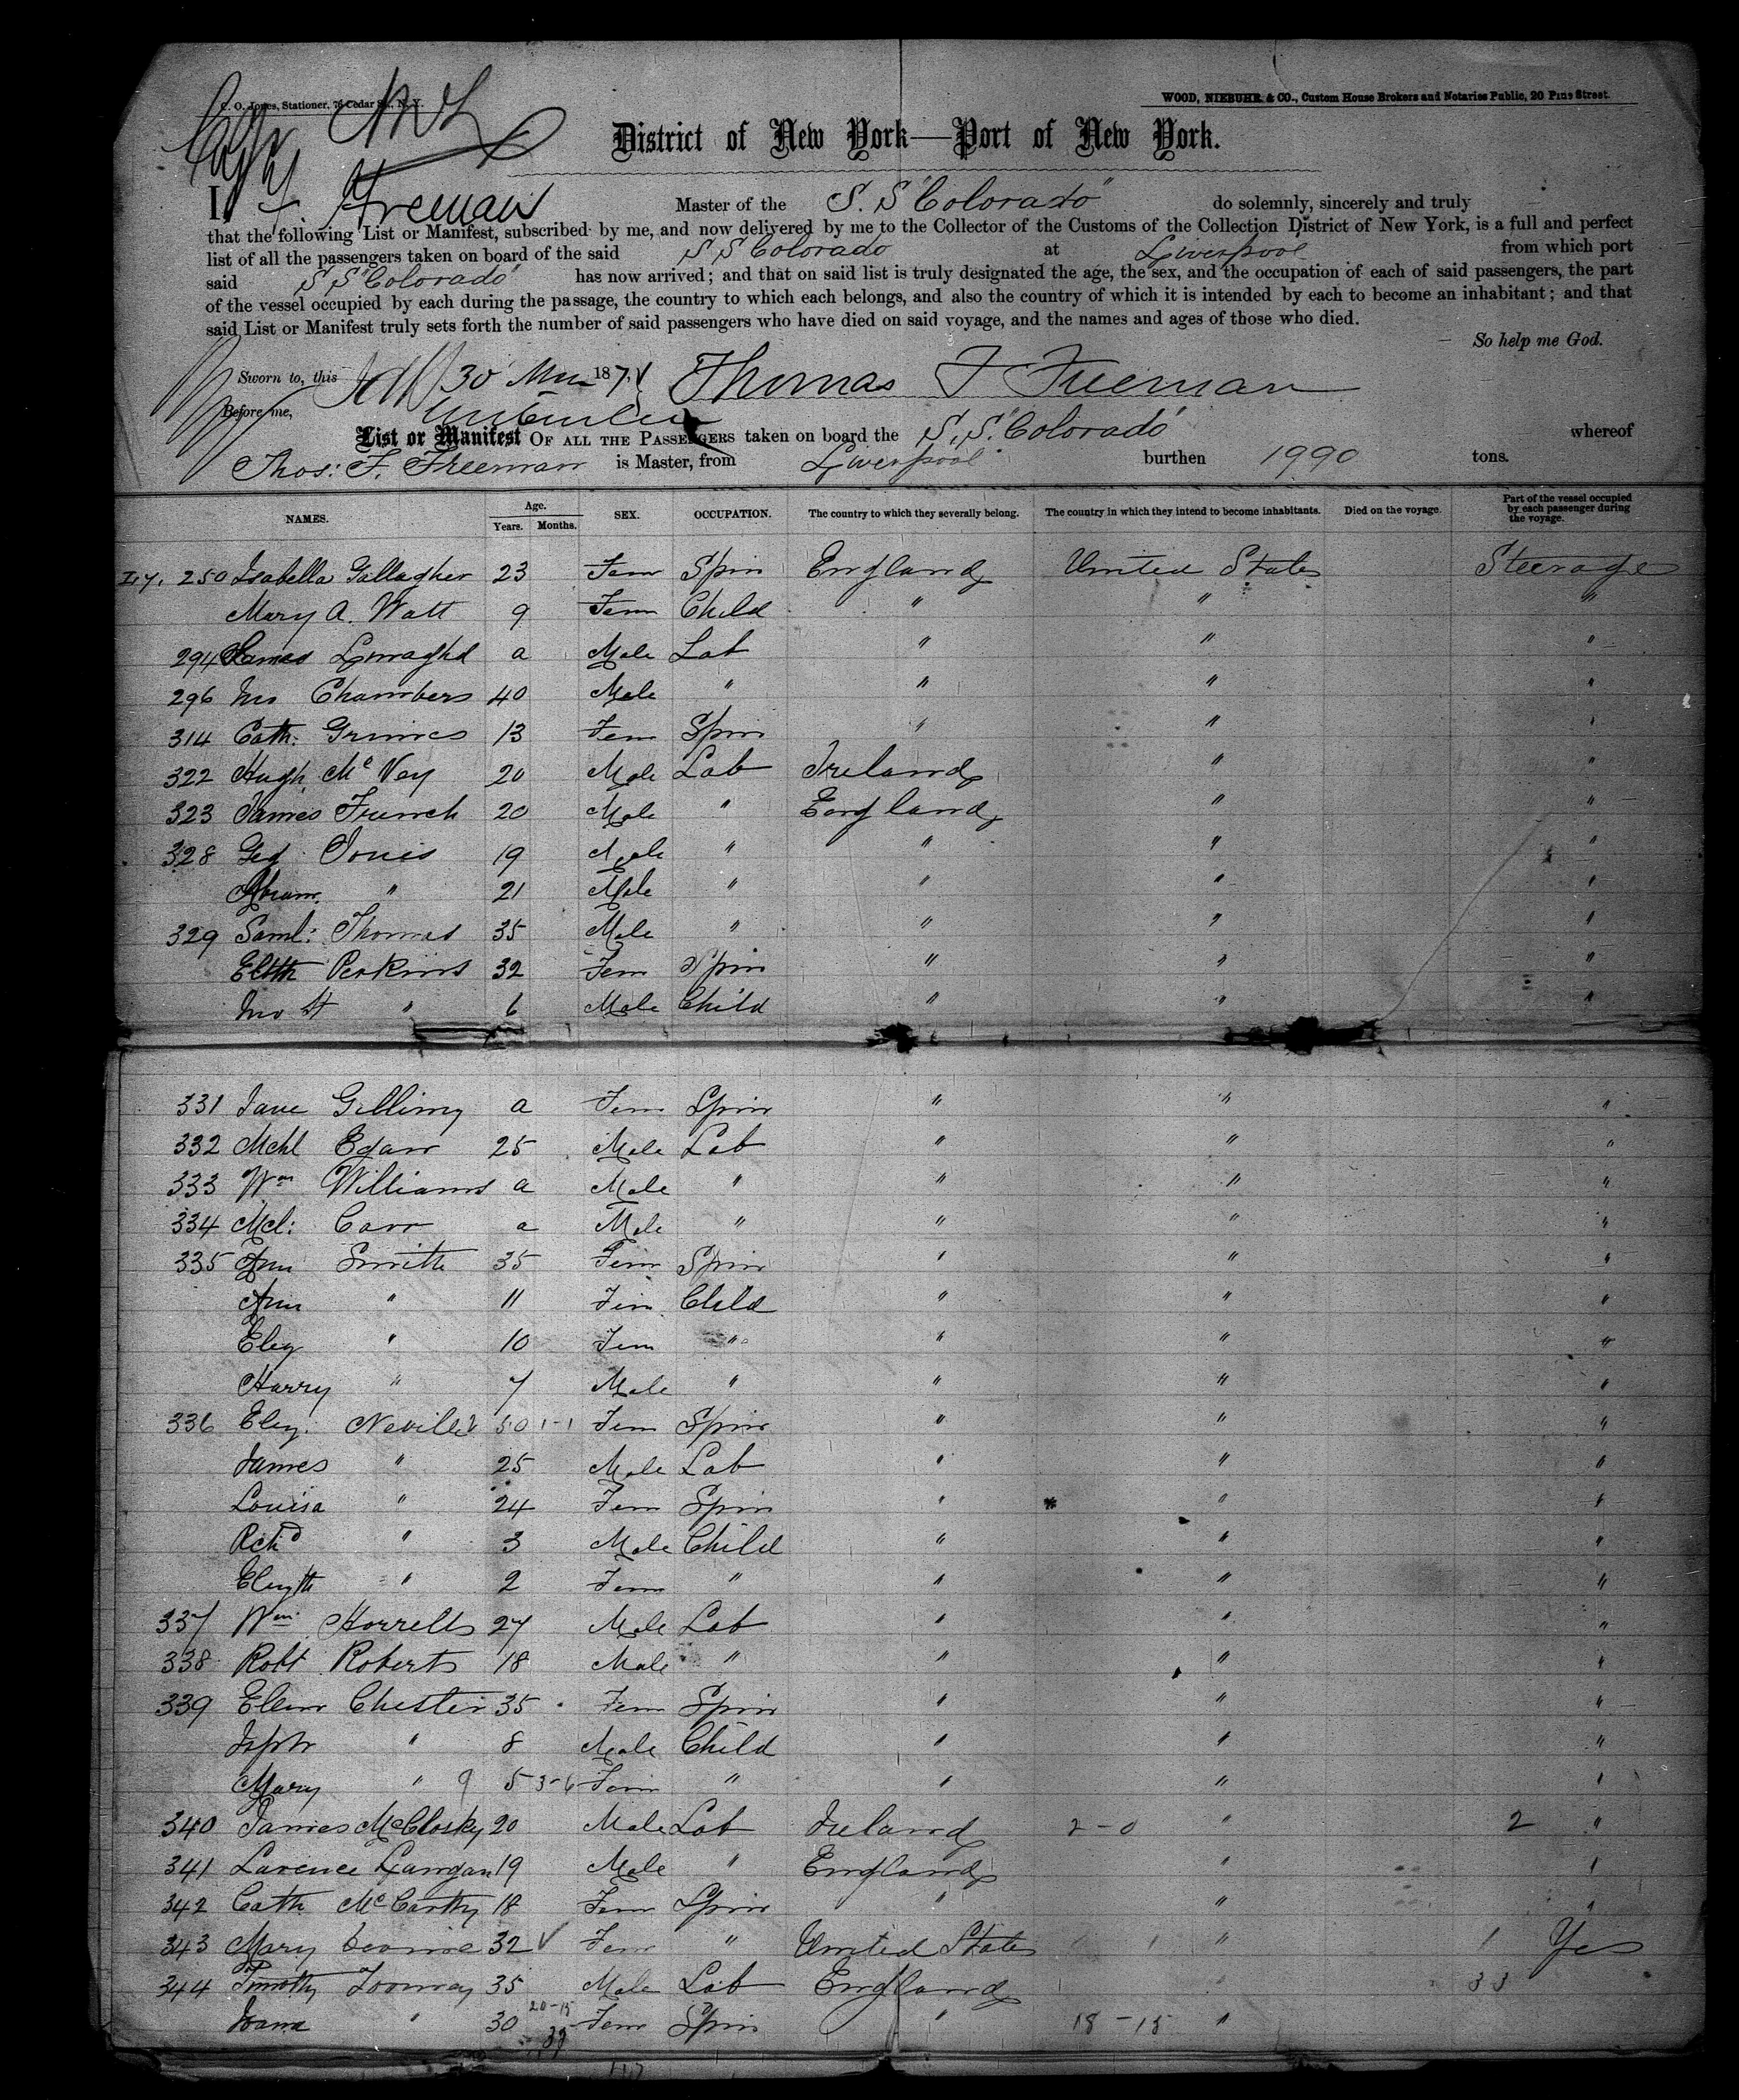 C. O. Jones, Stationer, 76 Cedar St., N. Y.
WOOD, NIEBUHR & CO., Custom House Brokers and Notaries Public, 20 Pine Street.
District of New York—Port of New York.
I, T. F. Freeman Master of the S. S "Colorado" do solemnly, sincerely and truly
that the following List or Manifest, subscribed by me, and now delivered by me to the Collector of the Customs of the Collection District of New York, is a full and perfect
list of all the passengers taken on board of the said S S Colorado at Liverpool from which port
said S S "Colorado" has now arrived; and that on said list is truly designated the age, the sex, and the occupation of each of said passengers, the part
of the vessel occupied by each during the passage, the country to which each belongs, and also the country of which it is intended by each to become an inhabitant; and that
said List or Manifest truly sets forth the number of said passengers who have died on said voyage, and the names and ages of those who died.
So help me God.
Sworn to, this 30 187 Thomas F Freeman
Before me,
List or Manifest OF ALL THE PASSENGERS taken on board the S. S. "Colorado" whereof
Thos: F. Freeman is Master, from Liverpool burthen 1990 tons.
NAMES. Age. Years. Months. SEX. OCCUPATION. The country to which they severally belong. The country in which they intend to become inhabitants. Died on the voyage. Part of the vessel occupied by each passenger during the voyage.
250 Isabella Gallagher 23 Fem Spin England United States Steerage
Mary A. Watt 9 Fem Child " " "
294 James a Male Lab " " "
296 Jno Chambers 40 Male " " " "
314 Cath: Grimes 13 Fem Spin " " "
322 Hugh Mc Vey 20 Male Lab Ireland " "
323 James French 20 Male " England " "
328 Geo Jones 19 Male " " " "
Abram " 21 Male " " " "
329 Saml: Thomas 35 Male " " " "
Elzth Perkins 32 Fem Spin " " "
Jno H " 6 Male Child " " "
331 Jane a Fem Spin " " "
332 Mchl Egan 25 Male Lab " " "
333 Wm Williams a Male " " " "
334 Mcl: Carr a Male " " " "
335 Ann Smith 35 Fem Spin " " "
Ann " 11 Fem Child " " "
Eliz " 10 Fem " " " "
Harry " 7 Male " " " "
336 Eliz. Neville 50 1-1 Fem Spin " " "
James " 25 Male Lab " " "
Louisa " 24 Fem Spin " " "
Richd " 3 Male Child " " "
Elizth " 2 Fem " " " "
337 Wm Horrells 27 Male Lab " " "
338 Robt Roberts 18 Male " " " "
339 Ellen Chester 35 Fem Spin " " "
Jsph " 8 Male Child " " "
Mary " 9 5 3-6 Fem " " " "
340 James McClosky 20 Male Lab Ireland 2-0 " 2 "
341 Larence Langan 19 Male " England " "
342 Cath Mc Carthy 18 Fem Spin " " "
343 Mary 32 Fem " United States " 1 Yes
344 Timothy Toomay 35 Male Lab England " 33
" 30 20-15 Fem Spin " 18-15 "
39